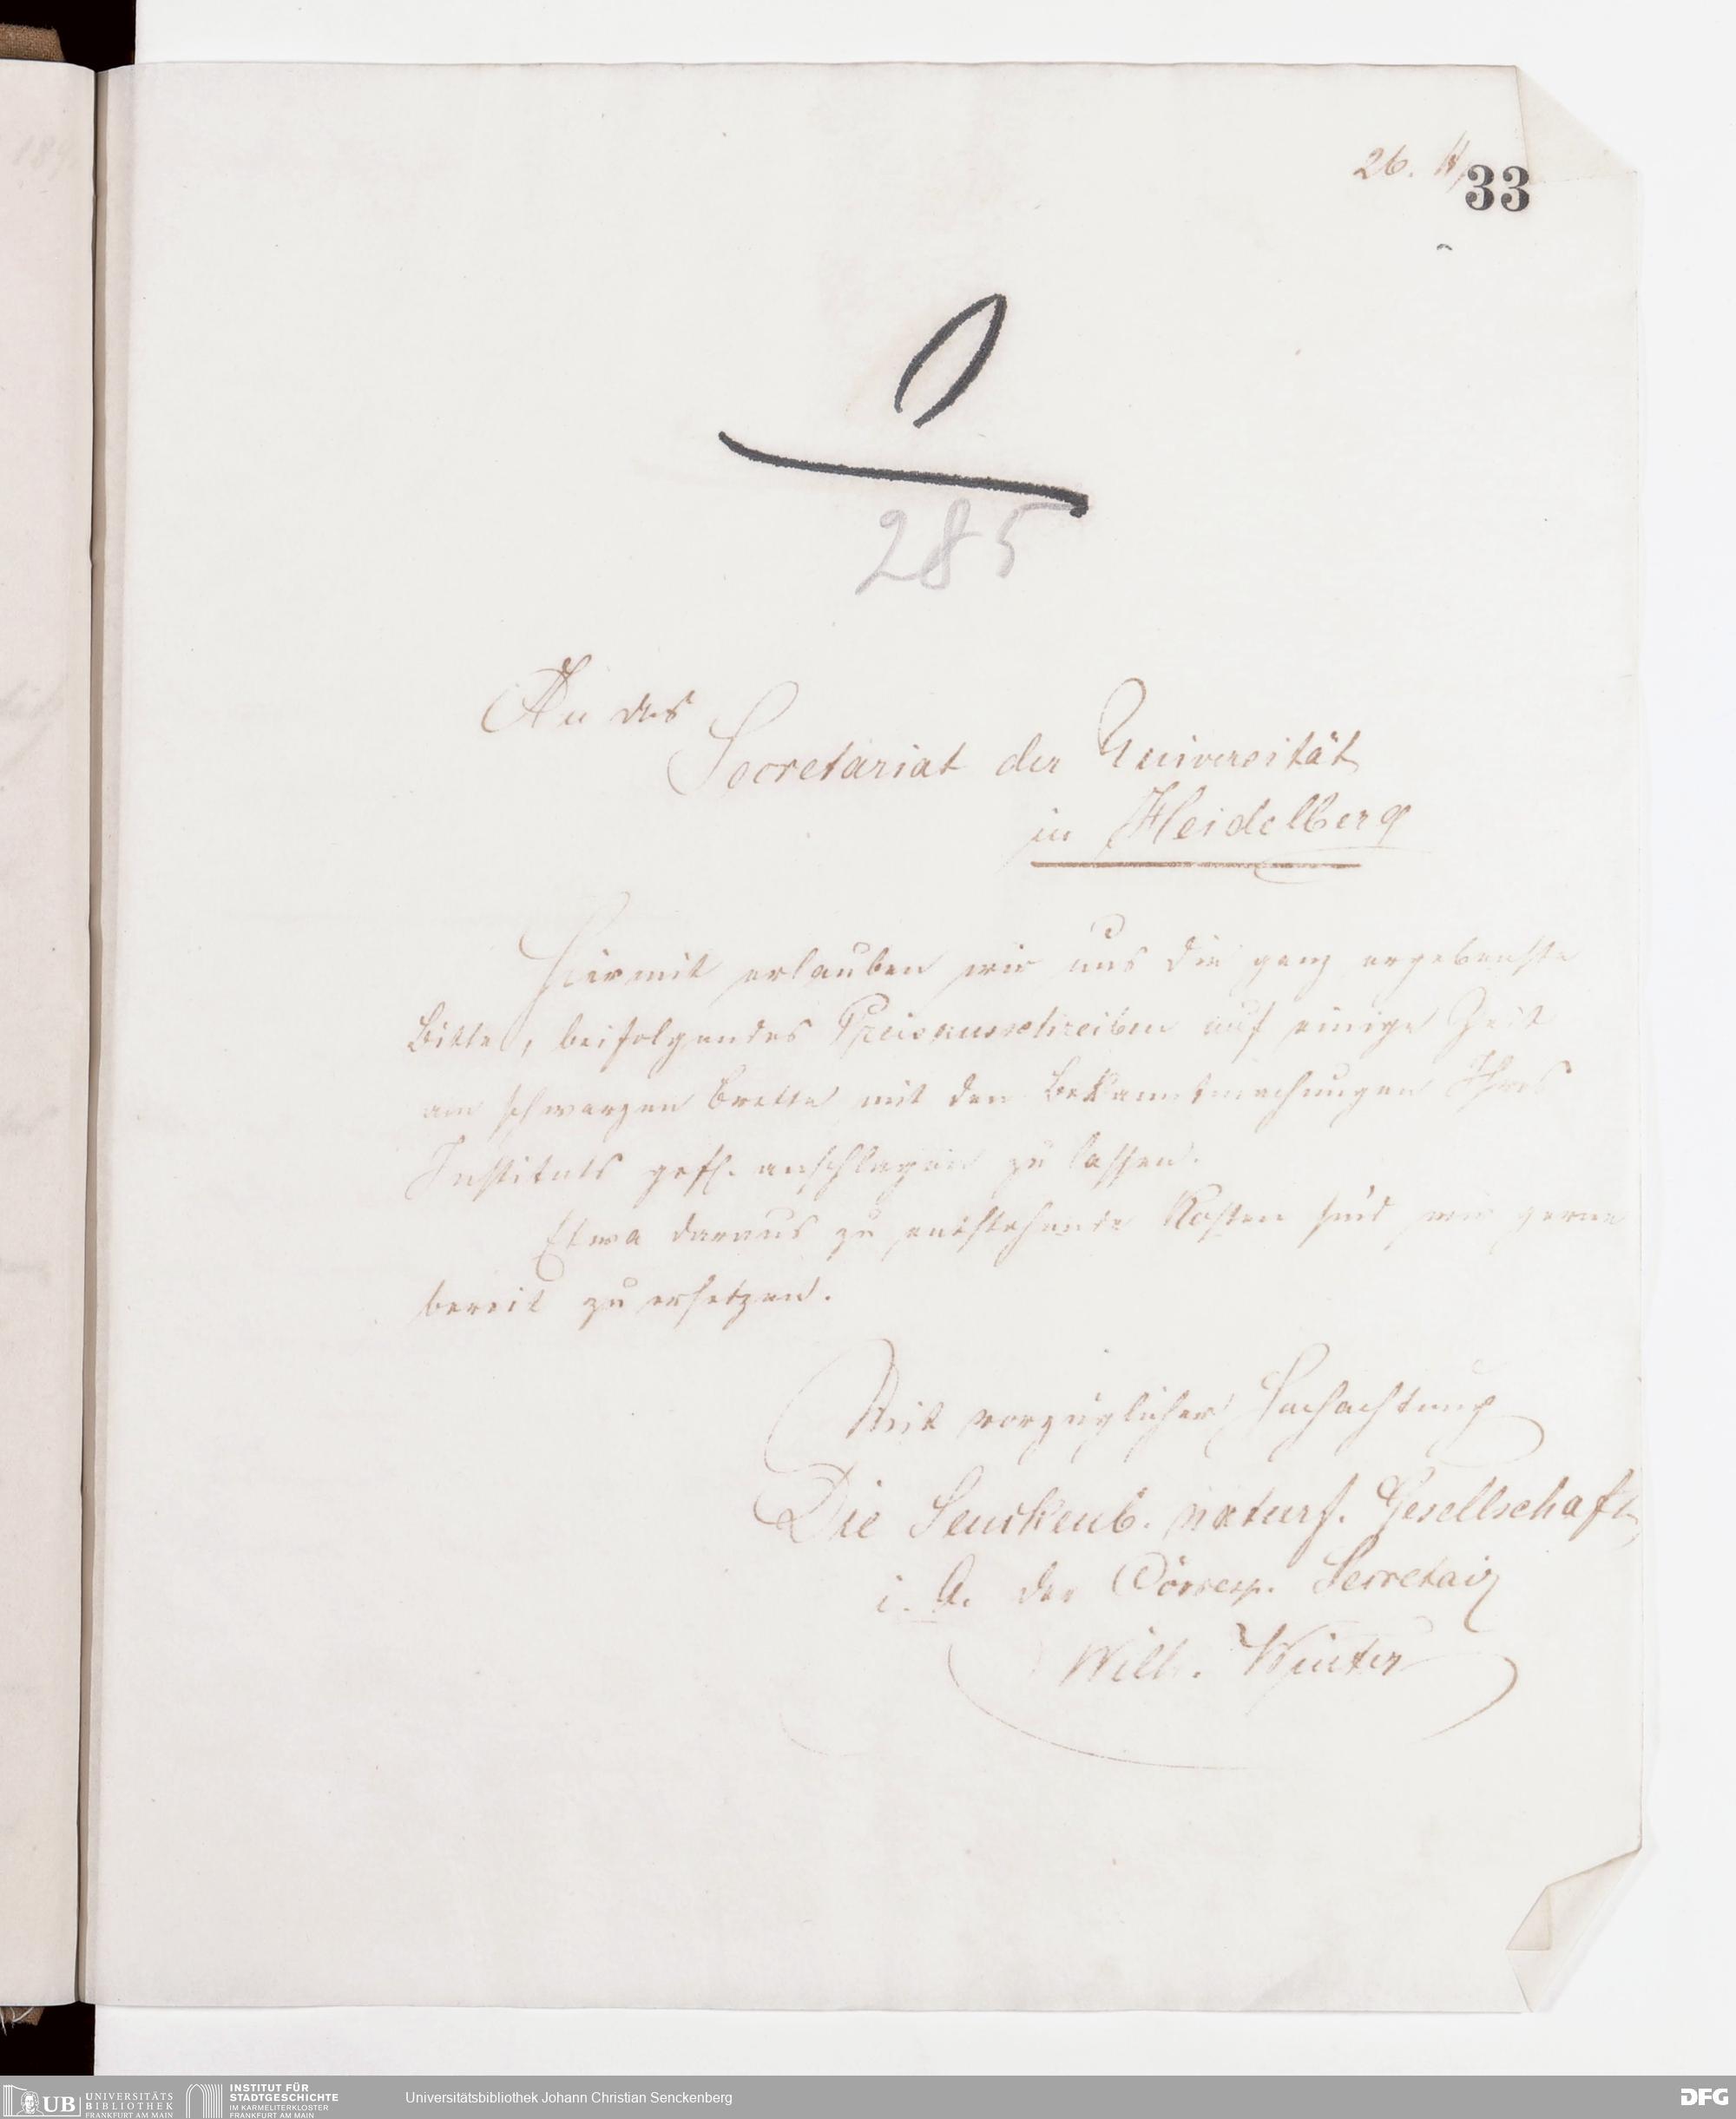 26.
33
285
An das
Secretariat der Universität
in Heidelberg
Hiermit erlauben wir uns die ganz ergebenste
Bitte, beifolgendes Preisausschreiben auf einige Zeit
am schwarzen Brette mit den Bekanntmachungen Ihres
Instituts gefl. anschlagen zu lassen.
Etwa daraus zu entstehende Kosten sind wir gerne
bereit zu ersetzen.
Mit vorzüglicher Hochachtung
Die Senckenb. naturf. Gesellschaft
i. A. der Corresp. Secretair
Wilh. Winter
UB UNIVERSITÄTS
BIBLIOTHEK
FRANKFURT AM MAIN
INSTITUT FÜR
STADTGESCHICHTE
IM KARMELITERKLOSTER
FRANKFURT AM MAIN
Universitätsbibliothek Johann Christian Senckenberg
DFG